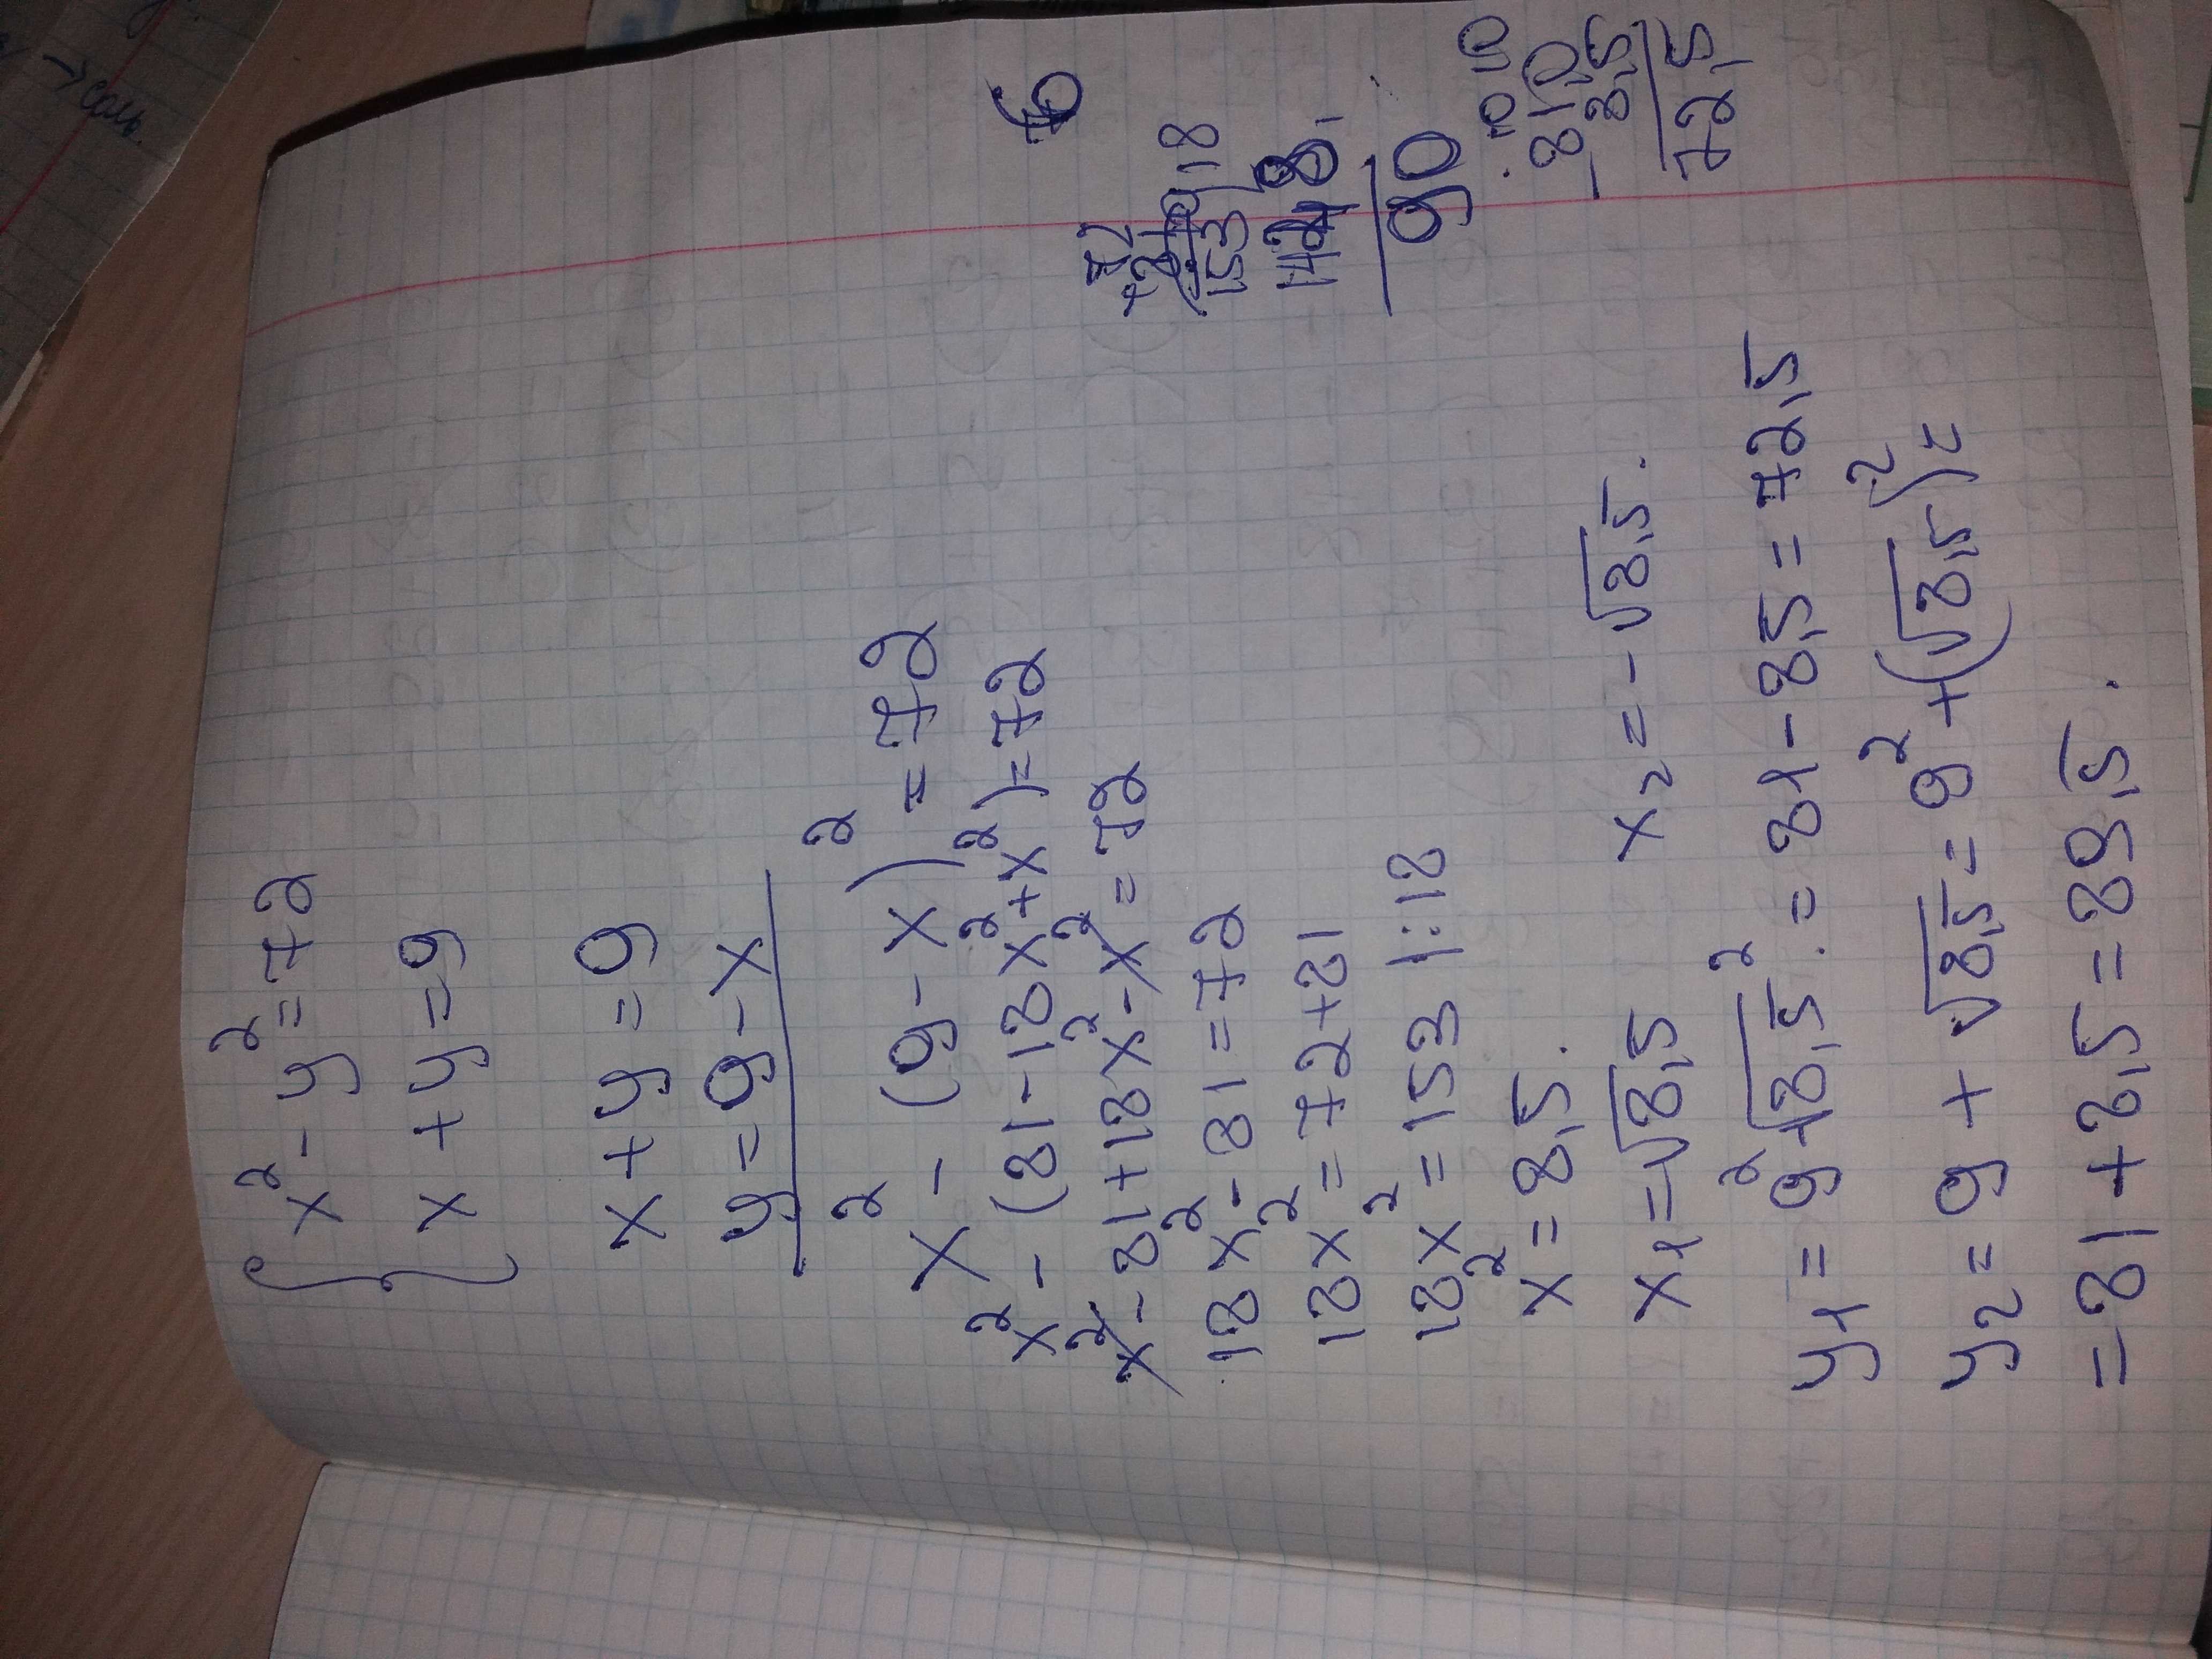 x² - y² = 72
x + y = 9
x + y = 9
y = 9 - x
x² - (9 - x)² = 72
x² - (81 - 18x² + x²) = 72
x² - 81 + 18x² - x² = 72
18x² - 81 = 72
18x² = 72 + 81
18x² = 153 |:18
x² = 8,5.
x₁ = √8,5 x₂ = -√8,5.
y₁ = 9² - √8,5². = 81 - 8,5 = 72,5
y₂ = 9 + √8,5 = 9² + (√8,5)² =
= 81 + 8,5 = 89,5.
72
+81
153
18
90
10 10
-81,0
8,5
72,5
→ соль.